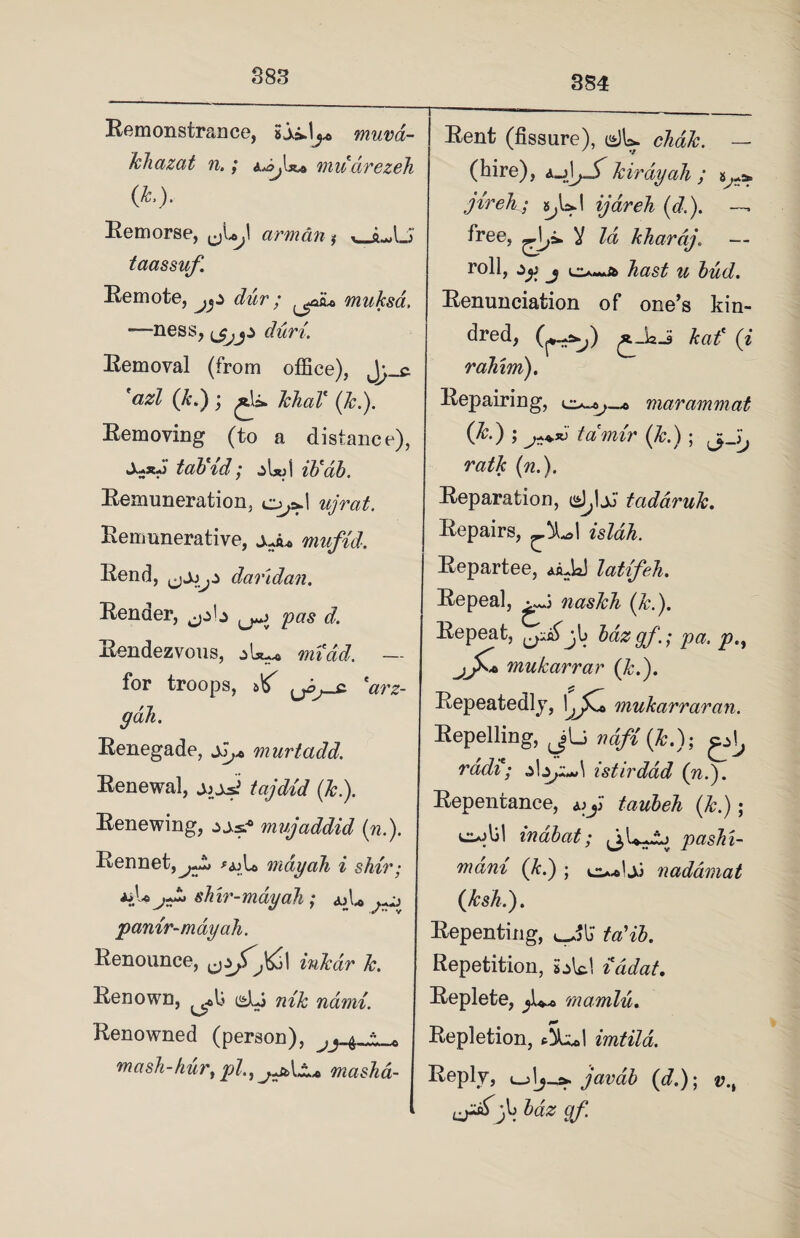 383
Remonstrance, مواخذة muvá-
khazat n. ; معارضه mu'árezeh
(k.).
Remorse, ارمان armán ; تاسف
taassuf.
Remote, دور dúr ; مقصى muksá.
—ness, دوري dúrí.
Removal (from office), عزل
'azl (k.) ; خلع khal' (k.).
Removing (to a distance),
تبعيد tab'íd ; ابعاد ib'áb.
Remuneration, اجرت ujrat.
Remunerative, مفيد mufíd.
Rend, دريدن darídan.
Render, پس دادن pas d.
Rendezvous, ميعاد mí'ád. —
for troops, عرض گاه 'arz-
gáh.
Renegade, مرتد murtadd.
Renewal, تجديد tajdíd (k.).
Renewing, مجدد mujaddid (n.).
Rennet, مايهٔ شير máyah i shír ;
شير مايه shír-máyah ; پنير مايه
panír-máyah.
Renounce, انكار كردن inkár k.
Renown, نيك نامى ník námí.
Renowned (person), مشهور
mash-húr, pl., مشاهير mashá-
384
Rent (fissure), چاك chák. —
(hire), كرايه kiráyah ; جيره
jíreh ; اجاره ijáreh (d.). —
free, لا خراج lá kharáj. —
roll, هست و بود hast u búd.
Renunciation of one's kin-
dred, قطع (رحيم) kat' (i
rahím).
Repairing, مرمت marammat
(k.) ; تعمير ta'mír (k.) ; رتق
ratk (n.).
Reparation, تدارك tadáruk.
Repairs, اصلاح isláh.
Repartee, لطيفه latífeh.
Repeal, نسخ naskh (k.).
Repeat, باز گفتن báz gf. ; pa. p.,
مكرر mukarrar (k.).
Repeatedly, مكررا mukarraran.
Repelling, نافى náfí (k.) ; رادع
rádi' ; استرداد istirdád (n.).
Repentance, توبه taubeh (k.) ;
انابت inábat ; پشيمانى pashí-
mání (k.) ; ندامت naddmat
(ksh.).
Repenting, تائب ta'ib.
Repetition, اعادة i'ádat.
Replete, مملو mamlú.
Repletion, امتلاء imtilá.
Reply, جواب javáb (d.) ; v.,
باز گفتن báz gf.